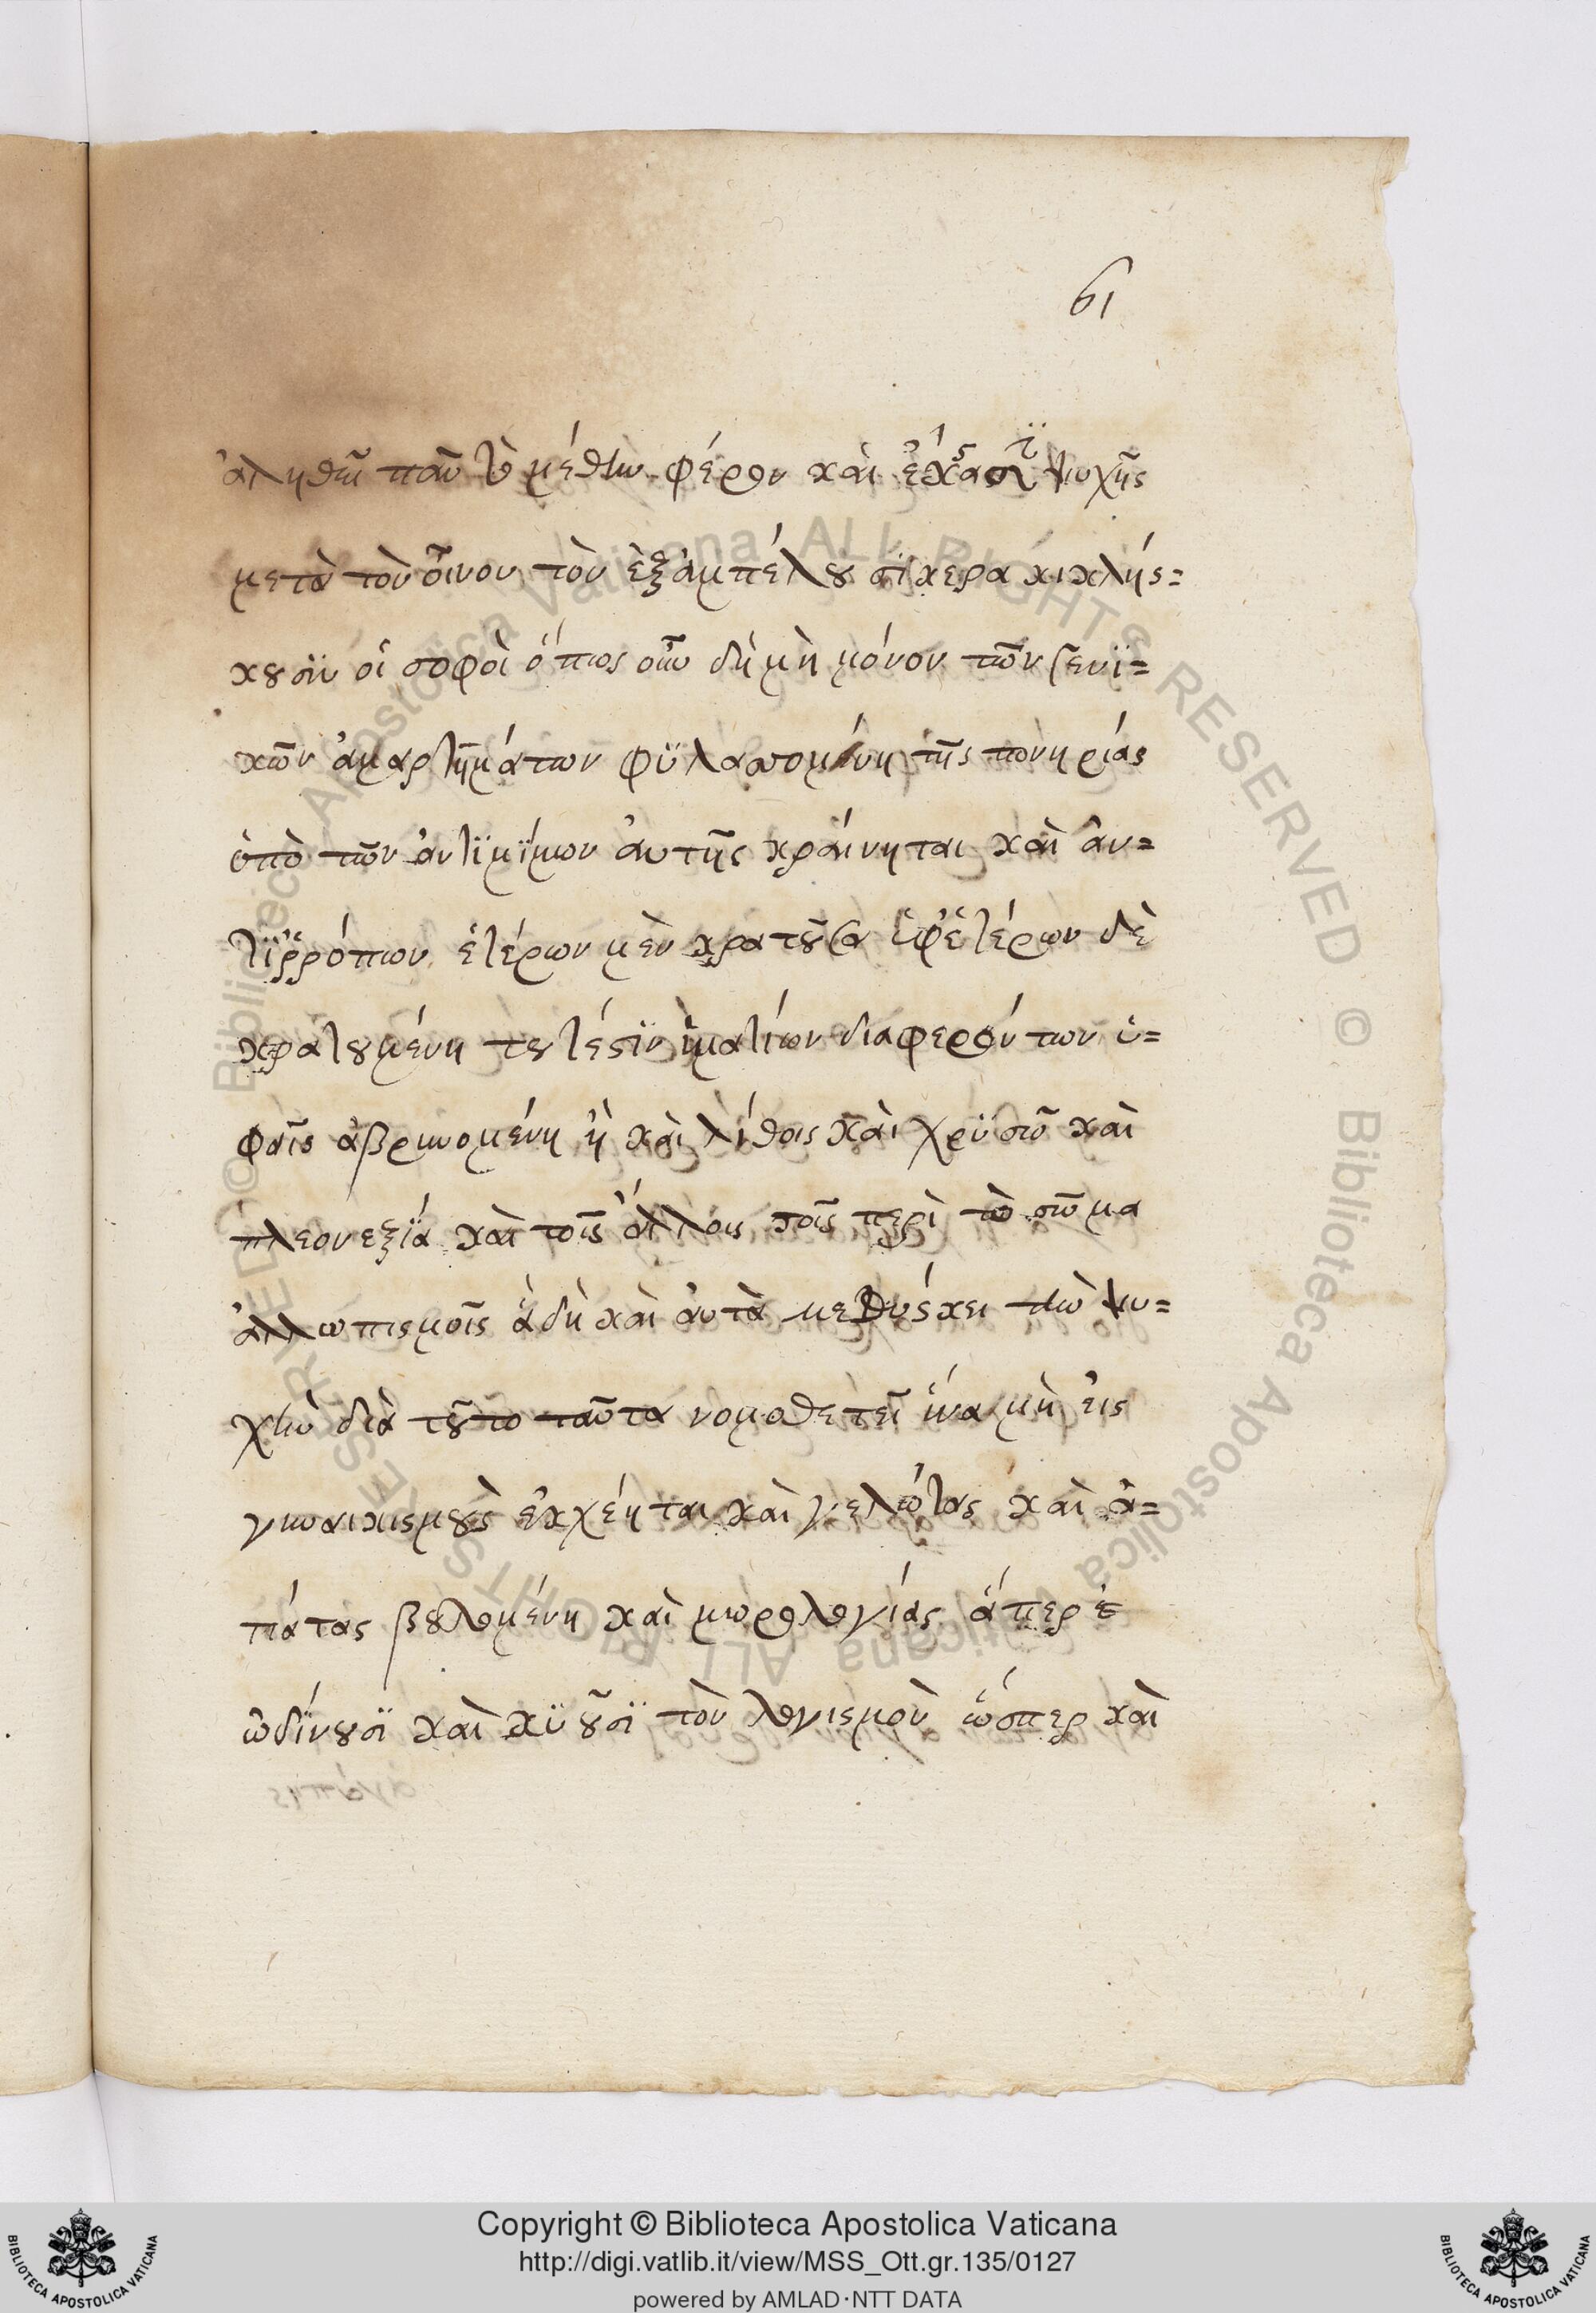 61
ἀληθῶ πᾶν τὸ μέθην φέρον καὶ ἔκστασϊν ψυχῆς
μετὰ τὸν οἶνον τὸν ἐξ ἀμπέλου σίκερα κικλήσ=
κουσϊν οἱ σοφοὶ ὅπως οὖν δὴ μὴ μόνον τῶν γενϊ=
κῶν ἁμαρτημάτων φϋλαττομένη τῆς πονηρίας
ὑπὸ τῶν ἀντϊμίμων αὐτῆς κραίνηται καὶ ἀν=
τϊῤῥόπων ἑτέρων μὲν κρατοῦσα ὑφ' ἑτέρων δὲ
κρατουμένη τουτέστϊν ἱματίων διαφερόντων ὑ=
φαῖς ἁβρυνομένη ἢ καὶ λίθοις καὶ χρϋσῶ καὶ
πλεονεξία καὶ τοῖς ἄλλοις τοῖς περὶ τὸ σῶμα
καλλωπισμοῖς ἃ δὴ καὶ αὐτὰ μεθύσκει τὴν ψυ=
χὴν διὰ τοῦτο ταῦτα νομοθετεῖ ἵνα μὴ εἰς
γυναικισμοὺς ἐκχέηται καὶ γέλωτας καὶ ἀ=
πάτας βουλομένη καὶ μωρολογίας ἅπερ ἐ
ὠδίνουσϊ καὶ κϋοῦσϊ τὸν λογισμὸν ὥσπερ καὶ
Copyright © Biblioteca Apostolica Vaticana
http://digi.vatlib.it/view/MSS_Ott.gr.135/0127
powered by AMLAD·NTT DATA
BIBLIOTECA APOSTOLICA VATICANA
BIBLIOTECA APOSTOLICA VATICANA
© Biblioteca Apostolica Vaticana ALL RIGHTS RESERVED
© Biblioteca Apostolica Vaticana ALL RIGHTS RESERVED